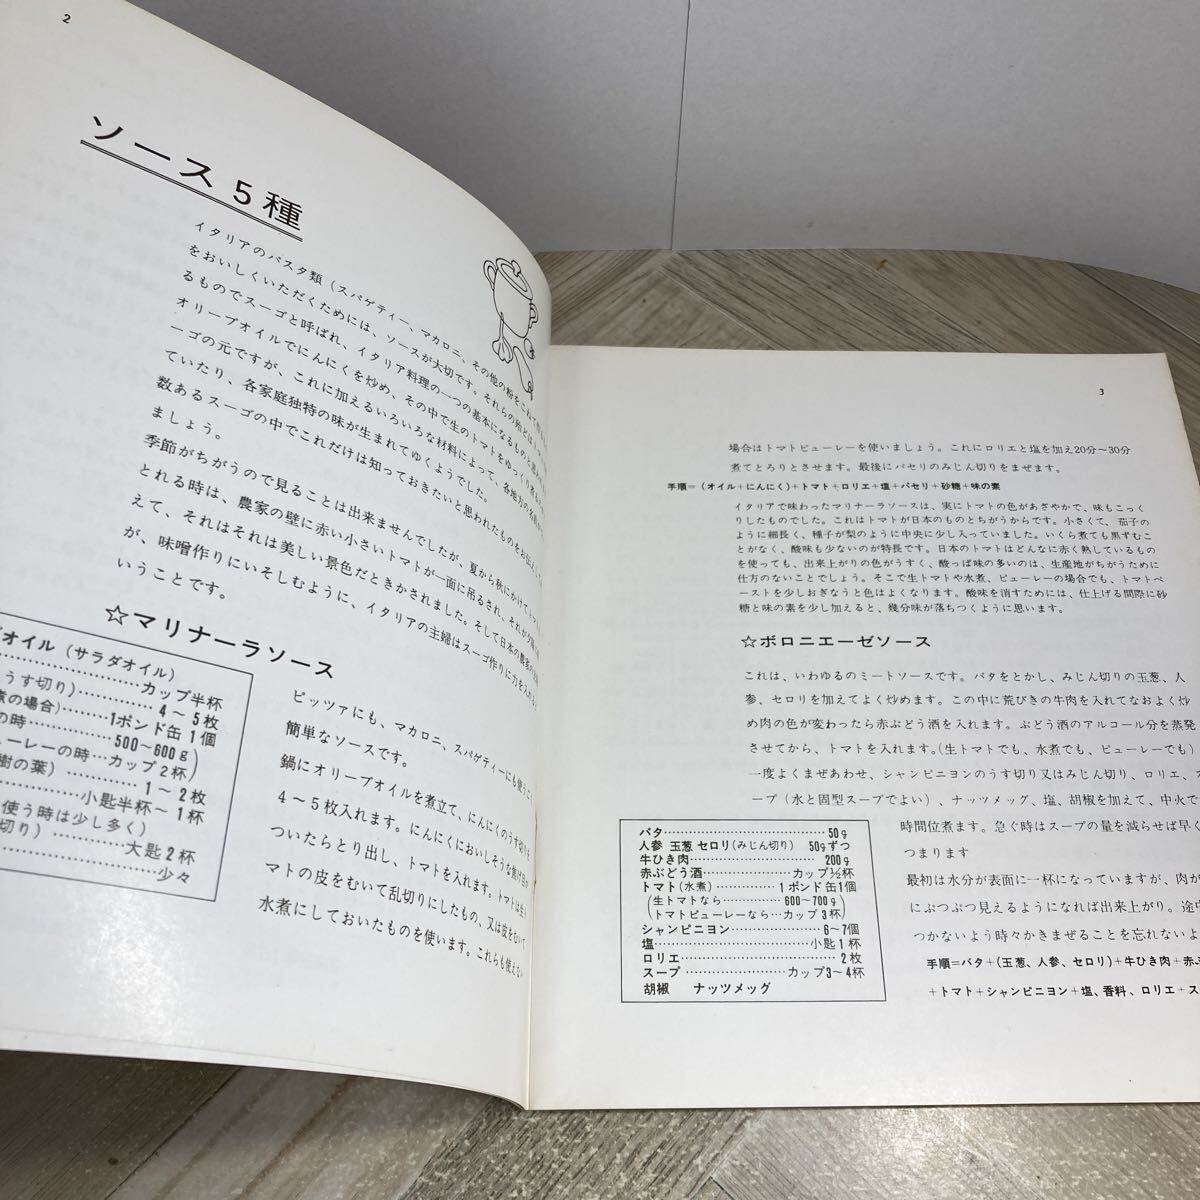 2
ソース5種
イタリアのパスタ類（スパゲティー、マカロニ、その他の粉をこねて
をおいしくいただくためには、ソースが大切です。それらの殆どは
るものでスーゴと呼ばれ、イタリア料理の一つの基本になるものと
オリーブオイルでにんにくを炒め、その中で生のトマトをゆっくり
ーゴの元ですが、これに加えるいろいろな材料によって、各地方の名前が
ていたり、各家庭独特の味が生まれてゆくようでした。
数あるスーゴの中でこれだけは知っておきたいと思われたものをお伝えし
ましょう。
季節がちがうので見ることは出来ませんでしたが、夏から秋にかけて
とれる時は、農家の壁に赤い小さいトマトが一面に吊るされ、それが
えて、それはそれは美しい景色だときかされました。そして日本の農家の
が、味噌作りにいそしむように、イタリアの主婦はスーゴ作りに力を入れる
いうことです。
☆マリナーラソース
オイル（サラダオイル）
カップ半杯
うす切り）……4～5枚
の場合）……1ポンド缶1個
の時……500～600g）
ューレーの時…カップ2杯
樹の葉）……1～2枚
小匙半杯～1杯
使う時は少し多く）
切り）……大匙2杯
……少々
ピッツァにも、マカロニ、スパゲティーにも使う
簡単なソースです。
鍋にオリーブオイルを煮立て、にんにくのうす切りを
4～5枚入れます。にんにくにおいしそうな焦げ目が
ついたらとり出し、トマトを入れます。トマトは生
マトの皮をむいて乱切りにしたもの、又は皮をむいて
水煮にしておいたものを使います。これらも使えない
3
場合はトマトピューレーを使いましょう。これにロリエと塩を加え20分～30分
煮てとろりとさせます。最後にパセリのみじん切りをまぜます。
手順＝（オイル＋にんにく）＋トマト＋ロリエ＋塩＋パセリ＋砂糖＋味の素
イタリアで味わったマリナーラソースは、実にトマトの色があざやかで、味もこっく
りしたものでした。これはトマトが日本のものとちがうからです。小さくて、茄子の
ように細長く、種子が梨のように中央に少し入っていました。いくら煮ても黒ずむこ
とがなく、酸味も少ないのが特長です。日本のトマトはどんなに赤く熟しているもの
を使っても、出来上がりの色がうすく、酸っぱ味の多いのは、生産地がちがうために
仕方のないことでしょう。そこで生トマトや水煮、ピューレーの場合でも、トマトペ
ーストを少しおぎなうと色はよくなります。酸味を消すためには、仕上げる間際に砂
糖と味の素を少し加えると、幾分味が落ちつくように思います。
☆ボロニエーゼソース
これは、いわゆるミートソースです。バタをとかし、みじん切りの玉葱、人
参、セロリを加えてよく炒めます。この中に荒びきの牛肉を入れてなおよく炒
め肉の色が変わったら赤ぶどう酒を入れます。ぶどう酒のアルコール分を蒸発
させてから、トマトを入れます。（生トマトでも、水煮でも、ピューレーでも）
一度よくまぜあわせ、シャンピニヨンのうす切り又はみじん切り、ロリエ、
ープ（水と固型スープでよい）、ナッツメッグ、塩、胡椒を加えて、中火で
時間位煮ます。急ぐ時はスープの量を減らせば早く
つまります
最初は水分が表面に一杯になっていますが、肉が
にぷつぷつ見えるようになれば出来上がり。途中
つかないよう時々かきまぜることを忘れないよ
手順＝バタ＋（玉葱、人参、セロリ）＋牛ひき肉＋赤ぶ
＋トマト＋シャンピニヨン＋塩、香料、ロリエ＋ス
バタ……50g
人参 玉葱 セロリ（みじん切り） 50gずつ
牛ひき肉……200g
赤ぶどう酒……カップ½杯
トマト（水煮）……1ポンド缶1個
（生トマトなら……600～700g）
（トマトピューレーなら…カップ3杯）
シャンピニヨン……6～7個
塩……小匙1杯
ロリエ……2枚
スープ……カップ3～4杯
胡椒 ナッツメッグ